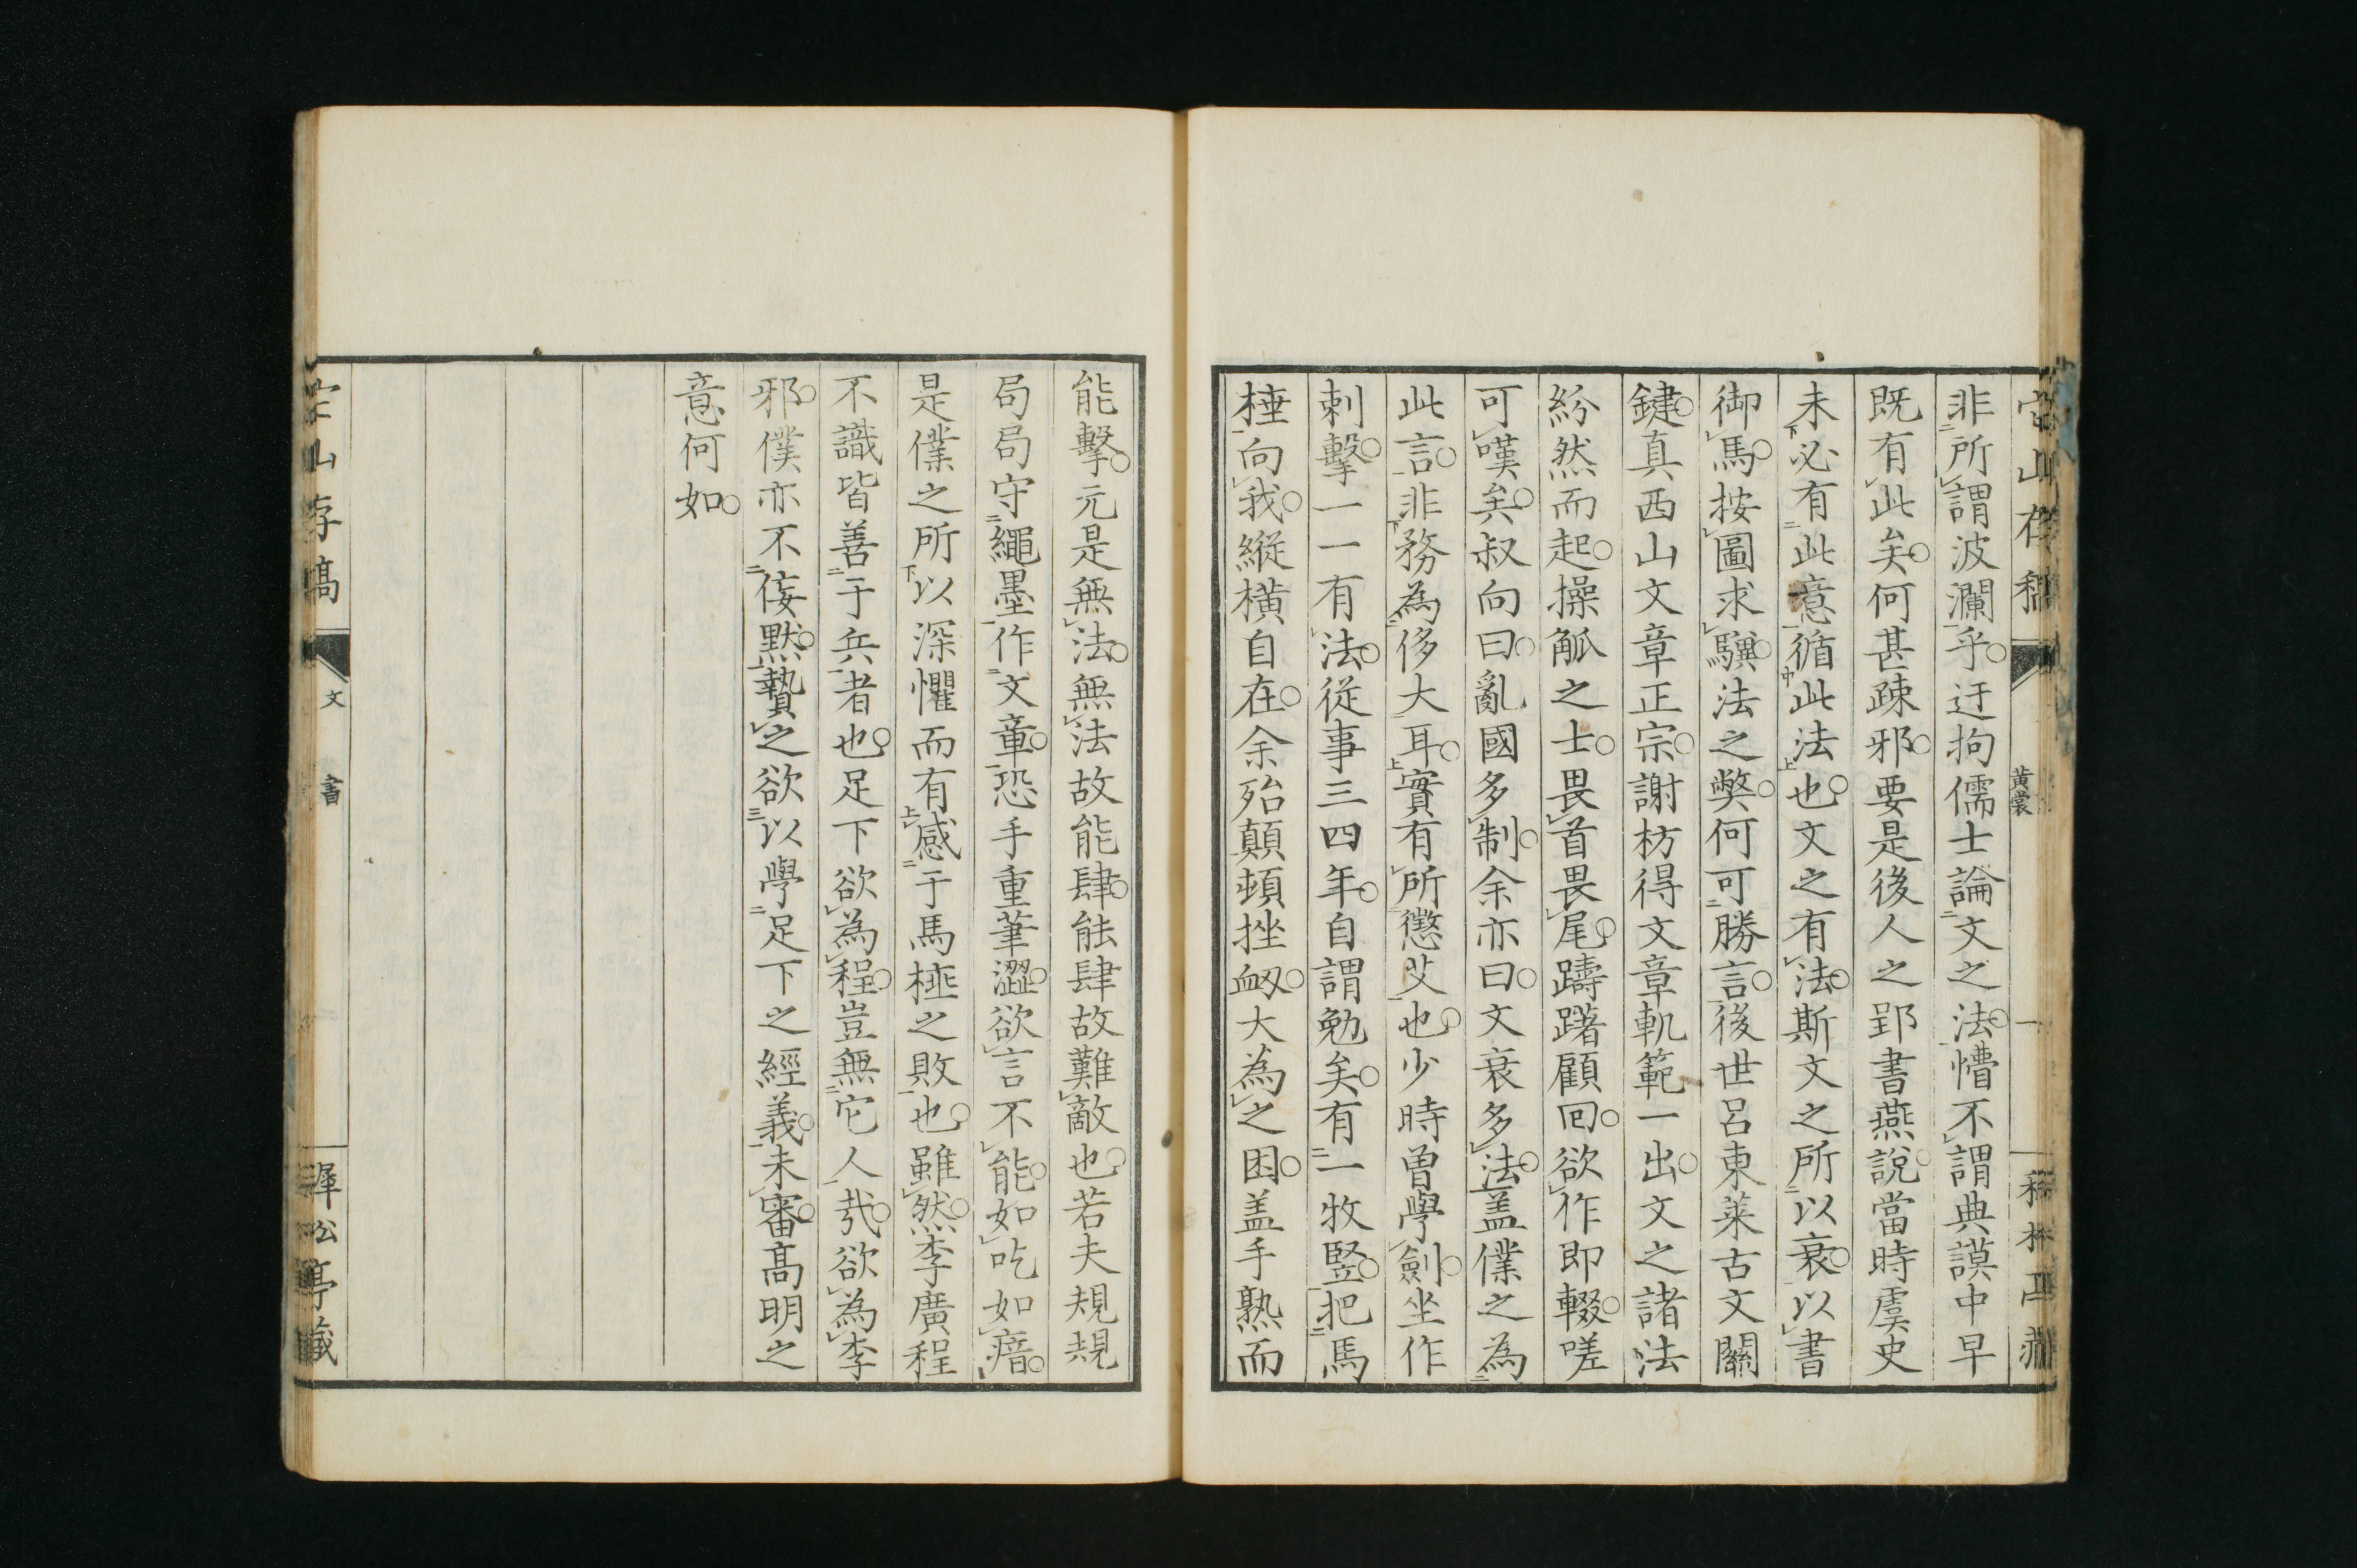 非所謂波瀾乎迂拘儒士論文之法懵不謂典謨中早
既有此矣何甚疎邪要是後人之郢書燕說當時虞史
未必有此意循此法也文之有法斯文之所以衰以書
御馬按圖求驥法之弊何可勝言後世呂東萊古文關
鍵真西山文章正宗謝枋得文章軌範一出文之諸法
紛然而起操觚之士畏首畏尾躊躇顧回欲作即輟嗟
可嘆矣叔向曰亂國多制余亦曰文衰多法盖僕之為
此言非務為侈大耳實有所懲艾也少時曽學劍坐作
刺擊一一有法從事三四年自謂勉矣有一牧豎把馬
棰向我縱横自在余殆顛頓挫衂大為之困盖手熟而
能擊元是無法無法故能肆能肆故難敵也若夫規規
局局守繩墨作文章恐手重筆澀欲言不能如吃如瘖
是僕之所以深懼而有感于馬棰之敗也雖然李廣程
不識皆善于兵者也足下欲為程豈無它人哉欲為李
邪僕亦不佞默贄之欲以學足下之經義未審高明之
意何如
山存稿
文
書
遲松亭藏